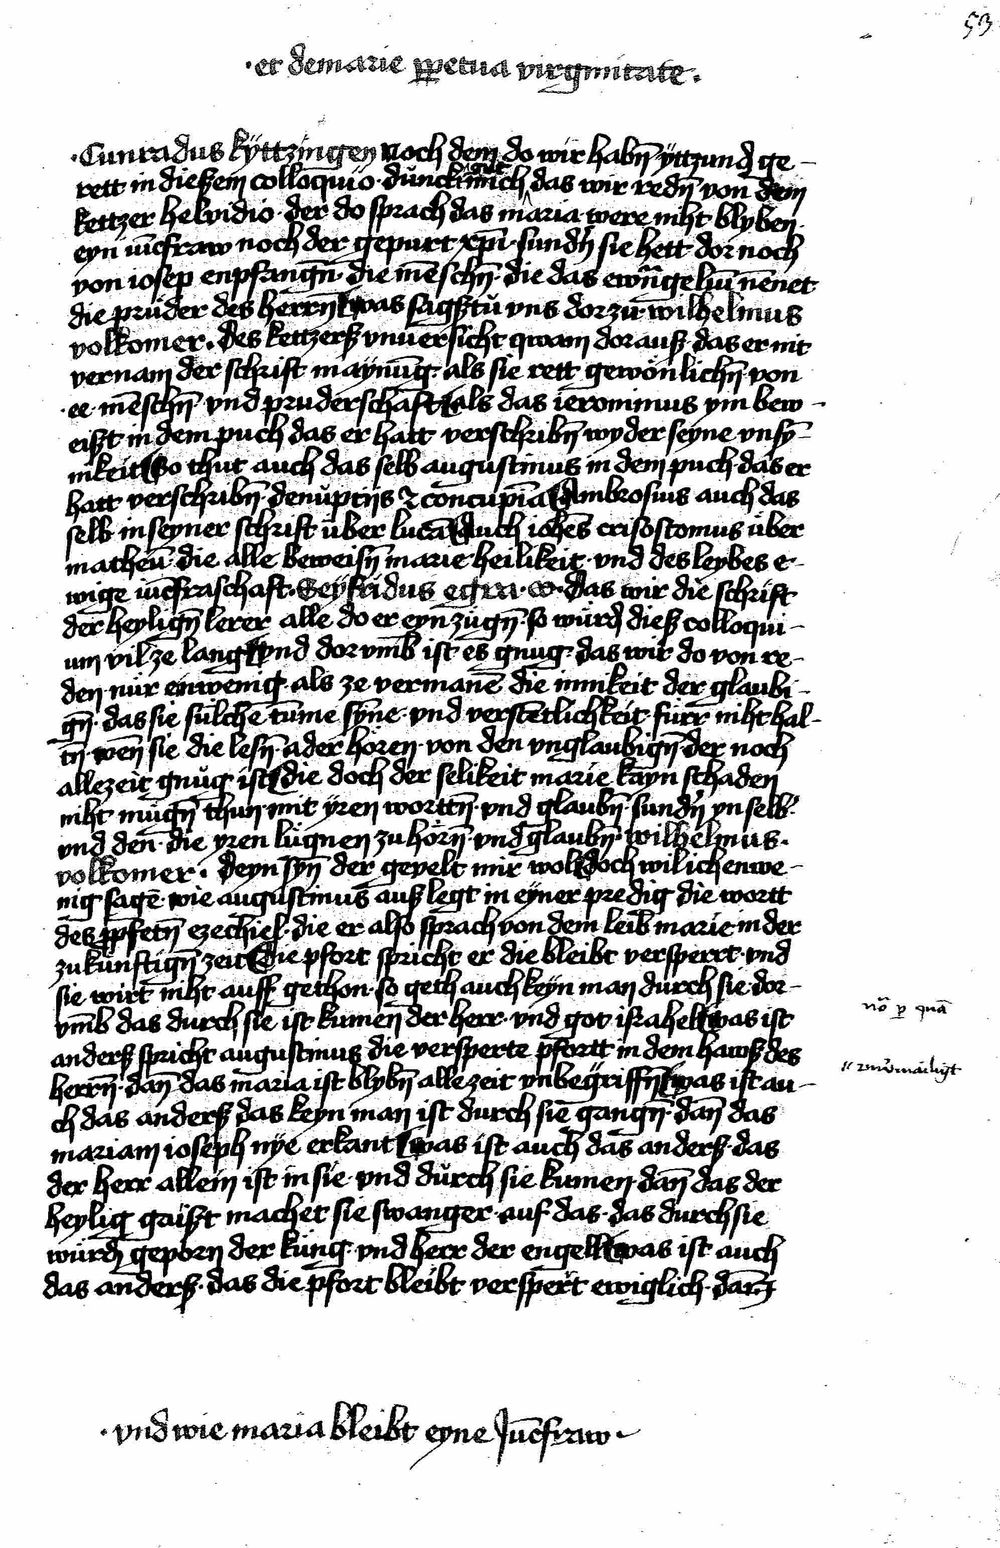 53
·et de marie ꝑpetua virginitate·
·Cunradus kÿttzingen noch dem do wir habn̄ ÿttzund ge–
rett in dießem colloquio· dunckt mich gut das wir redn̄ von dem
kettzer helvidio· der do sprach das maria were niht blyben
eyn iūcfraw noch der gepurt xp̄i· sundn̄ sie hett dor noch
von iosep enpfangn̄· die mēschn̄· die das ewāngeliū nēnet
die prüder des herrn was sagstu vns dorzu wilhelmus
volkomer· des kettzerß vnuersicht qwam dorauß das er nit
vernam der schrift maynūg· als sie rett gewönlichn̄ von
·ee· mēschn̄ vnd pruderschaft als das ieronimus ym bew–
eißt in dem puch das er hatt verschribn̄ wyder seyne vnsy̅–
nikeit So thut auch das selb augustinus in dem puch das er
hatt verschribn̄· de nuptijs ⁊ concupīa Ambrosius auch das
selb in seyner schrift über lucā Auch ioh̄es crisostomus über
matheū· die alle beweisn̄ marie heilikeit· vnd des leybes e–
wige iūcfraschaft· Seÿfridus das wir die schrift
der heylign̄ lerer alle do er eyn zügn̄· so würd dieß colloqui–
um vil ze lang vnd dor vmb ist es gnug· das wir do von re–
den nür einwenig als ze vermanē die innikeit der glaubi–
gn̄· das sie sülchē tūme sy̅ne· vnd verstētlichkeit fürr niht hal–
tn̄ wen̄ sie die lesn̄ ader hören von den vnglaubign̄ der noch
allezeit gnüg ist die doch der selikeit marie kayn schaden
niht mügn̄ thun mit yren wortтn̄· vnd glaubn̄ sundn̄ yn selb·
vnd den̄· die yren lügnen zu hörn̄· vnd glaubn̄ wilhelmus·
volkomer· Deyn syn̄ der geuelt mir wol doch wil ich enwe–
nig sagē wie augustinus auß legt in eyner predig die wortt
des ꝓpfetn̄ ezechiel· die er also sprach von dem leib marie in der
zukünftign̄ zeit Die pfort spricht er die bleibt versperrt· vnd
sie wirt niht auff gethon· so geth auch keyn man durch sie· dor–
vmb das durch sie ist kumen der herr· vnd got israhel was ist
anderß spricht augustinus die versperte pfortt in dem hawß des
herrn̄· dan̄ das maria ist blybn̄ allezeit vnbegriffn̄ was ist au–
ch das anderß das keyn man ist durch sie gangn̄· dan̄ das
mariam ioseph nÿe erkant was ist auch das anderß· das
der herr allein ist in sie· vnd durch sie kumen· dan̄ das der
heylig gaißt machet sie swanger auf das· das durch sie
würd geporn der küng· vnd herr der engell was ist auch
das anderß· das die pfort bleibt verspert ewiglich· dan̄
·vnd wie maria bleibt eyne Jūcfraw·